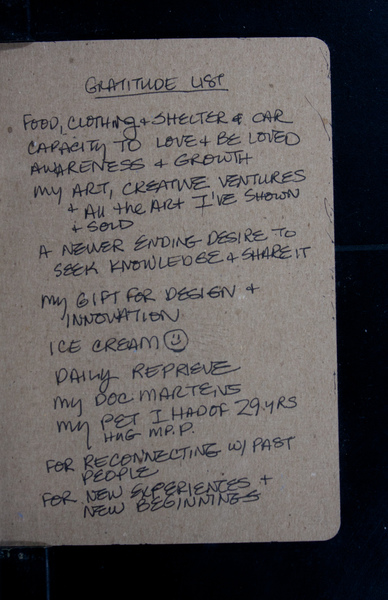 GRATITUDE LIST
FOOD, CLOTHING + SHELTER & CAR
CAPACITY TO LOVE + BE LOVED
AWARENESS + GROWTH
MY ART, CREATIVE VENTURES
+ All the ART I'VE SHOWN
+ SOLD
A NEWER ENDING DESIRE TO
SEEK KNOWLEDGE & SHARE IT
MY GIFT FOR DESIGN +
INNOVATION
ICE CREAM
DAILY REPRIEVE
MY DOC MARTENS
MY PET I HAD OF 29.YRS
FOR RECONNECTING W/ PAST
PEOPLE
FOR NEW EXPERIENCES +
NEW BEGINNINGS